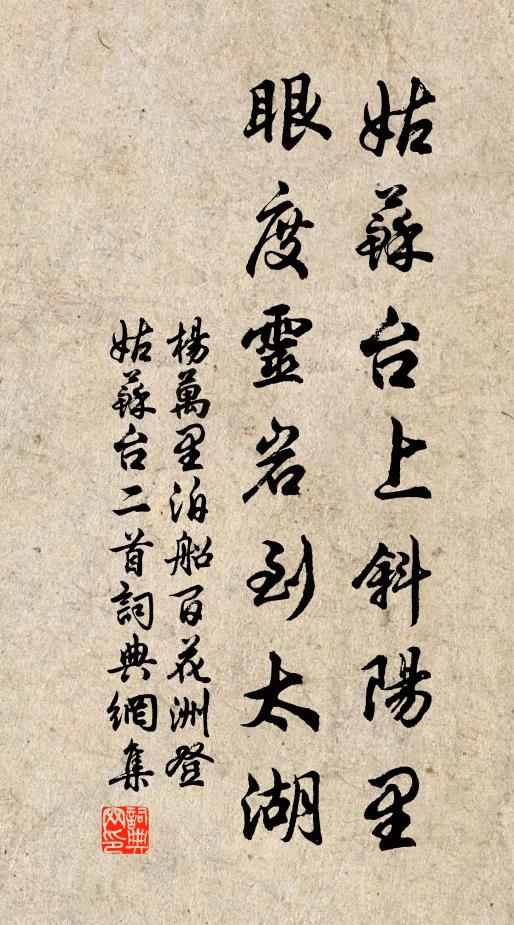 姑蘇台上斜陽里
眼度靈岩到太湖
楊萬里泊船百花洲登
姑蘇台二首詞典網集
詞典网印